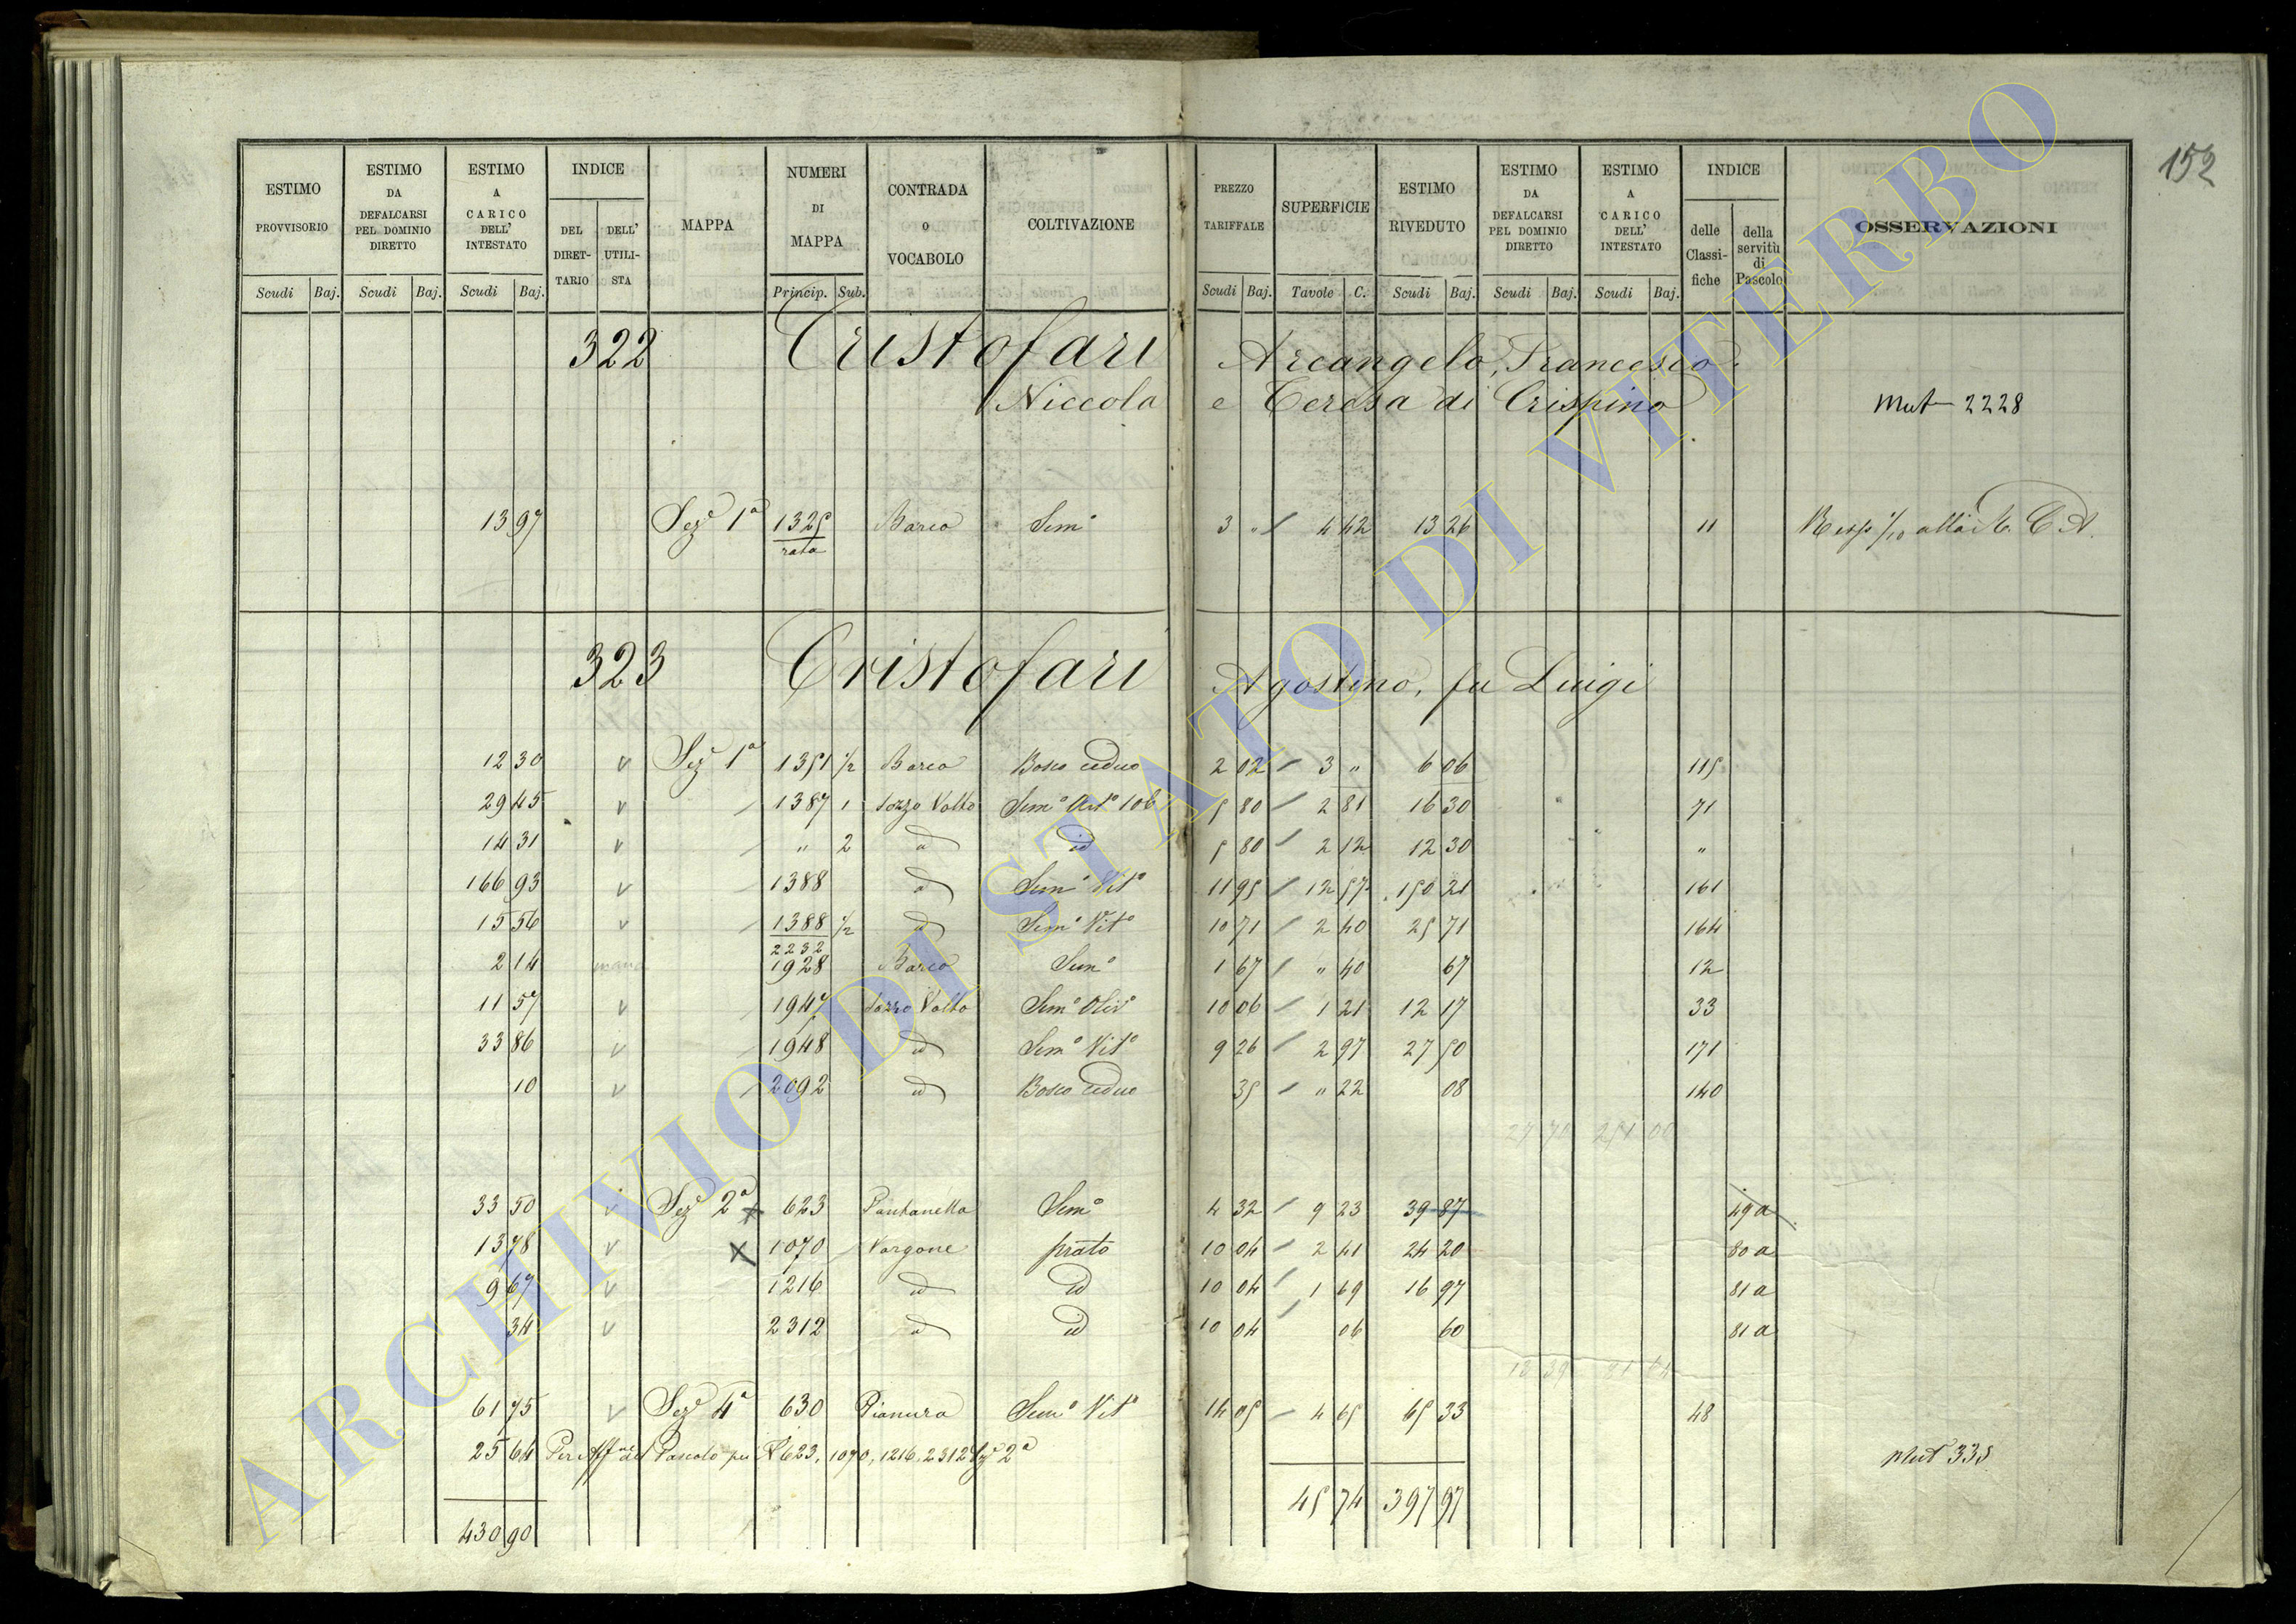 152
ESTIMO PROVVISORIO Scudi Baj. ESTIMO DA DEFALCARSI PEL DOMINIO DIRETTO Scudi Baj. ESTIMO A CARICO DELL' INTESTATO Scudi Baj. INDICE DEL DIRET- TARIO DELL' UTILI- STA MAPPA NUMERI DI MAPPA Princip. Sub. CONTRADA O VOCABOLO COLTIVAZIONE PREZZO TARIFFALE Scudi Baj. SUPERFICIE Tavole C. ESTIMO RIVEDUTO Scudi Baj. ESTIMO DA DEFALCARSI PEL DOMINIO DIRETTO Scudi Baj. ESTIMO A CARICO DELL' INTESTATO Scudi Baj. INDICE delle Classi- fiche della servitù di Pascolo OSSERVAZIONI
322 Cristofari Arcangelo, Francesco
Niccola e Teresa di Crispino Mut 2228
13 97 Sez.e 1a 1325 Barco Sem.o 3 " 4 42 13 26 11 Resp 1/10 alla R. C. A.
rata
323 Cristofari Agostino, fu Luigi
12 30 v Sez 1a 1351 1/2 Barco Bosco ceduo 2 02 3 " 6 06 115
29 45 v 1387 1 Pozzo Volto Sem.o Art.o 106 5 80 2 81 16 30 71
14 31 v " 2 id id 5 80 2 12 12 30 "
166 93 v 1388 id Sem.o Vit.o 11 95 12 57 150 21 161
15 56 v 1388 1/2 id Sem.o Vit.o 10 71 2 40 25 71 164
2232
2 14 1928 Barco Sem.o 1 67 " 40 67 12
11 57 v 1947 Pozzo Volto Sem.o Oliv.o 10 06 1 21 12 17 33
33 86 v 1948 id Sem.o Vit.o 9 26 2 97 27 50 171
10 v 2092 id Bosco ceduo 35 " 22 08 140
27 70 251 00
33 50 v Sez.e 2a x 623 Pantanella Sem.o 4 32 9 23 39 87 49 a
13 78 v x 1070 Vargone prato 10 04 2 41 24 20 80 a
9 67 v 1216 id id 10 04 1 69 16 97 81 a
34 v 2312 id id 10 04 06 60 81 a
81 64
61 75 v Sez.e 4a 630 Pianura Sem.o Vit.o 14 05 4 65 65 33 48
25 64 Per Aff.ne del Pascolo pei N 623, 1070, 1216, 2312 Sez.e 2a Mut 335
45 74 397 97
430 90
ARCHIVIO DI STATO DI VITERBO